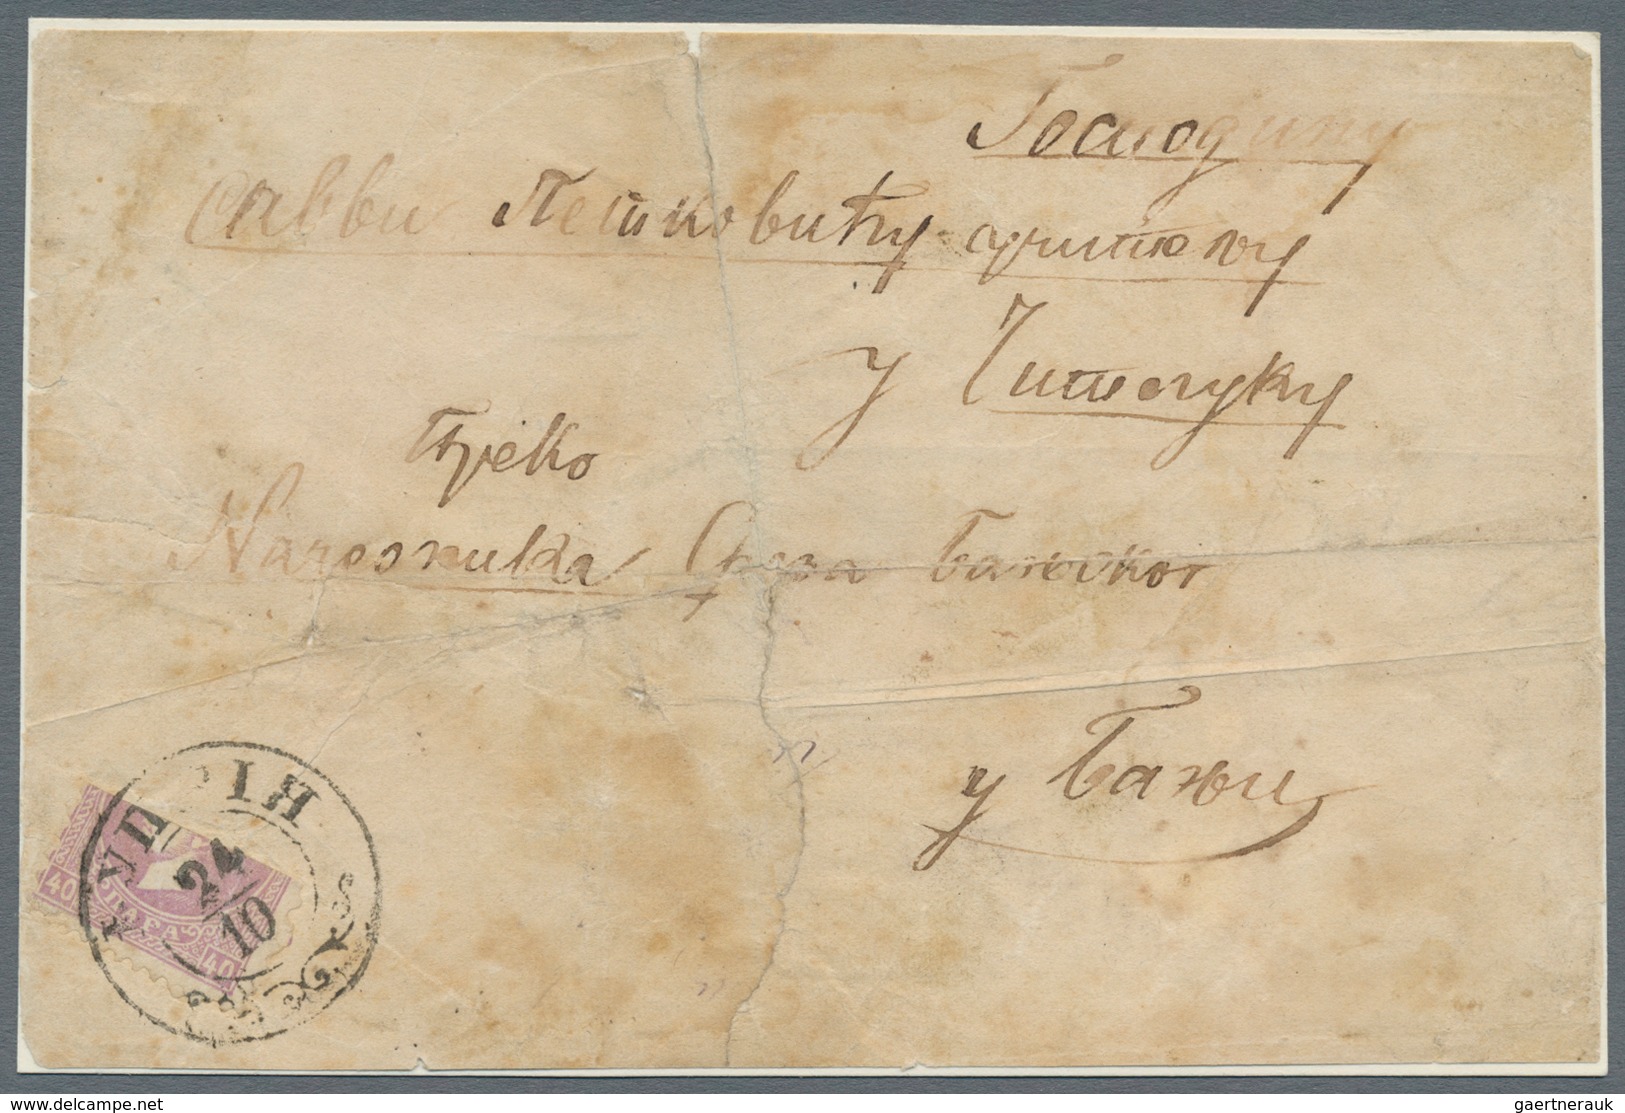 Господину
Савви Петковићу учитељу
у Читлуку
Преко
Началника Среза Бањског
у Бањи
ЋУПРІЯ
24
10
40
ПАРА
40
© www.delcampe.net
gaertnerauk